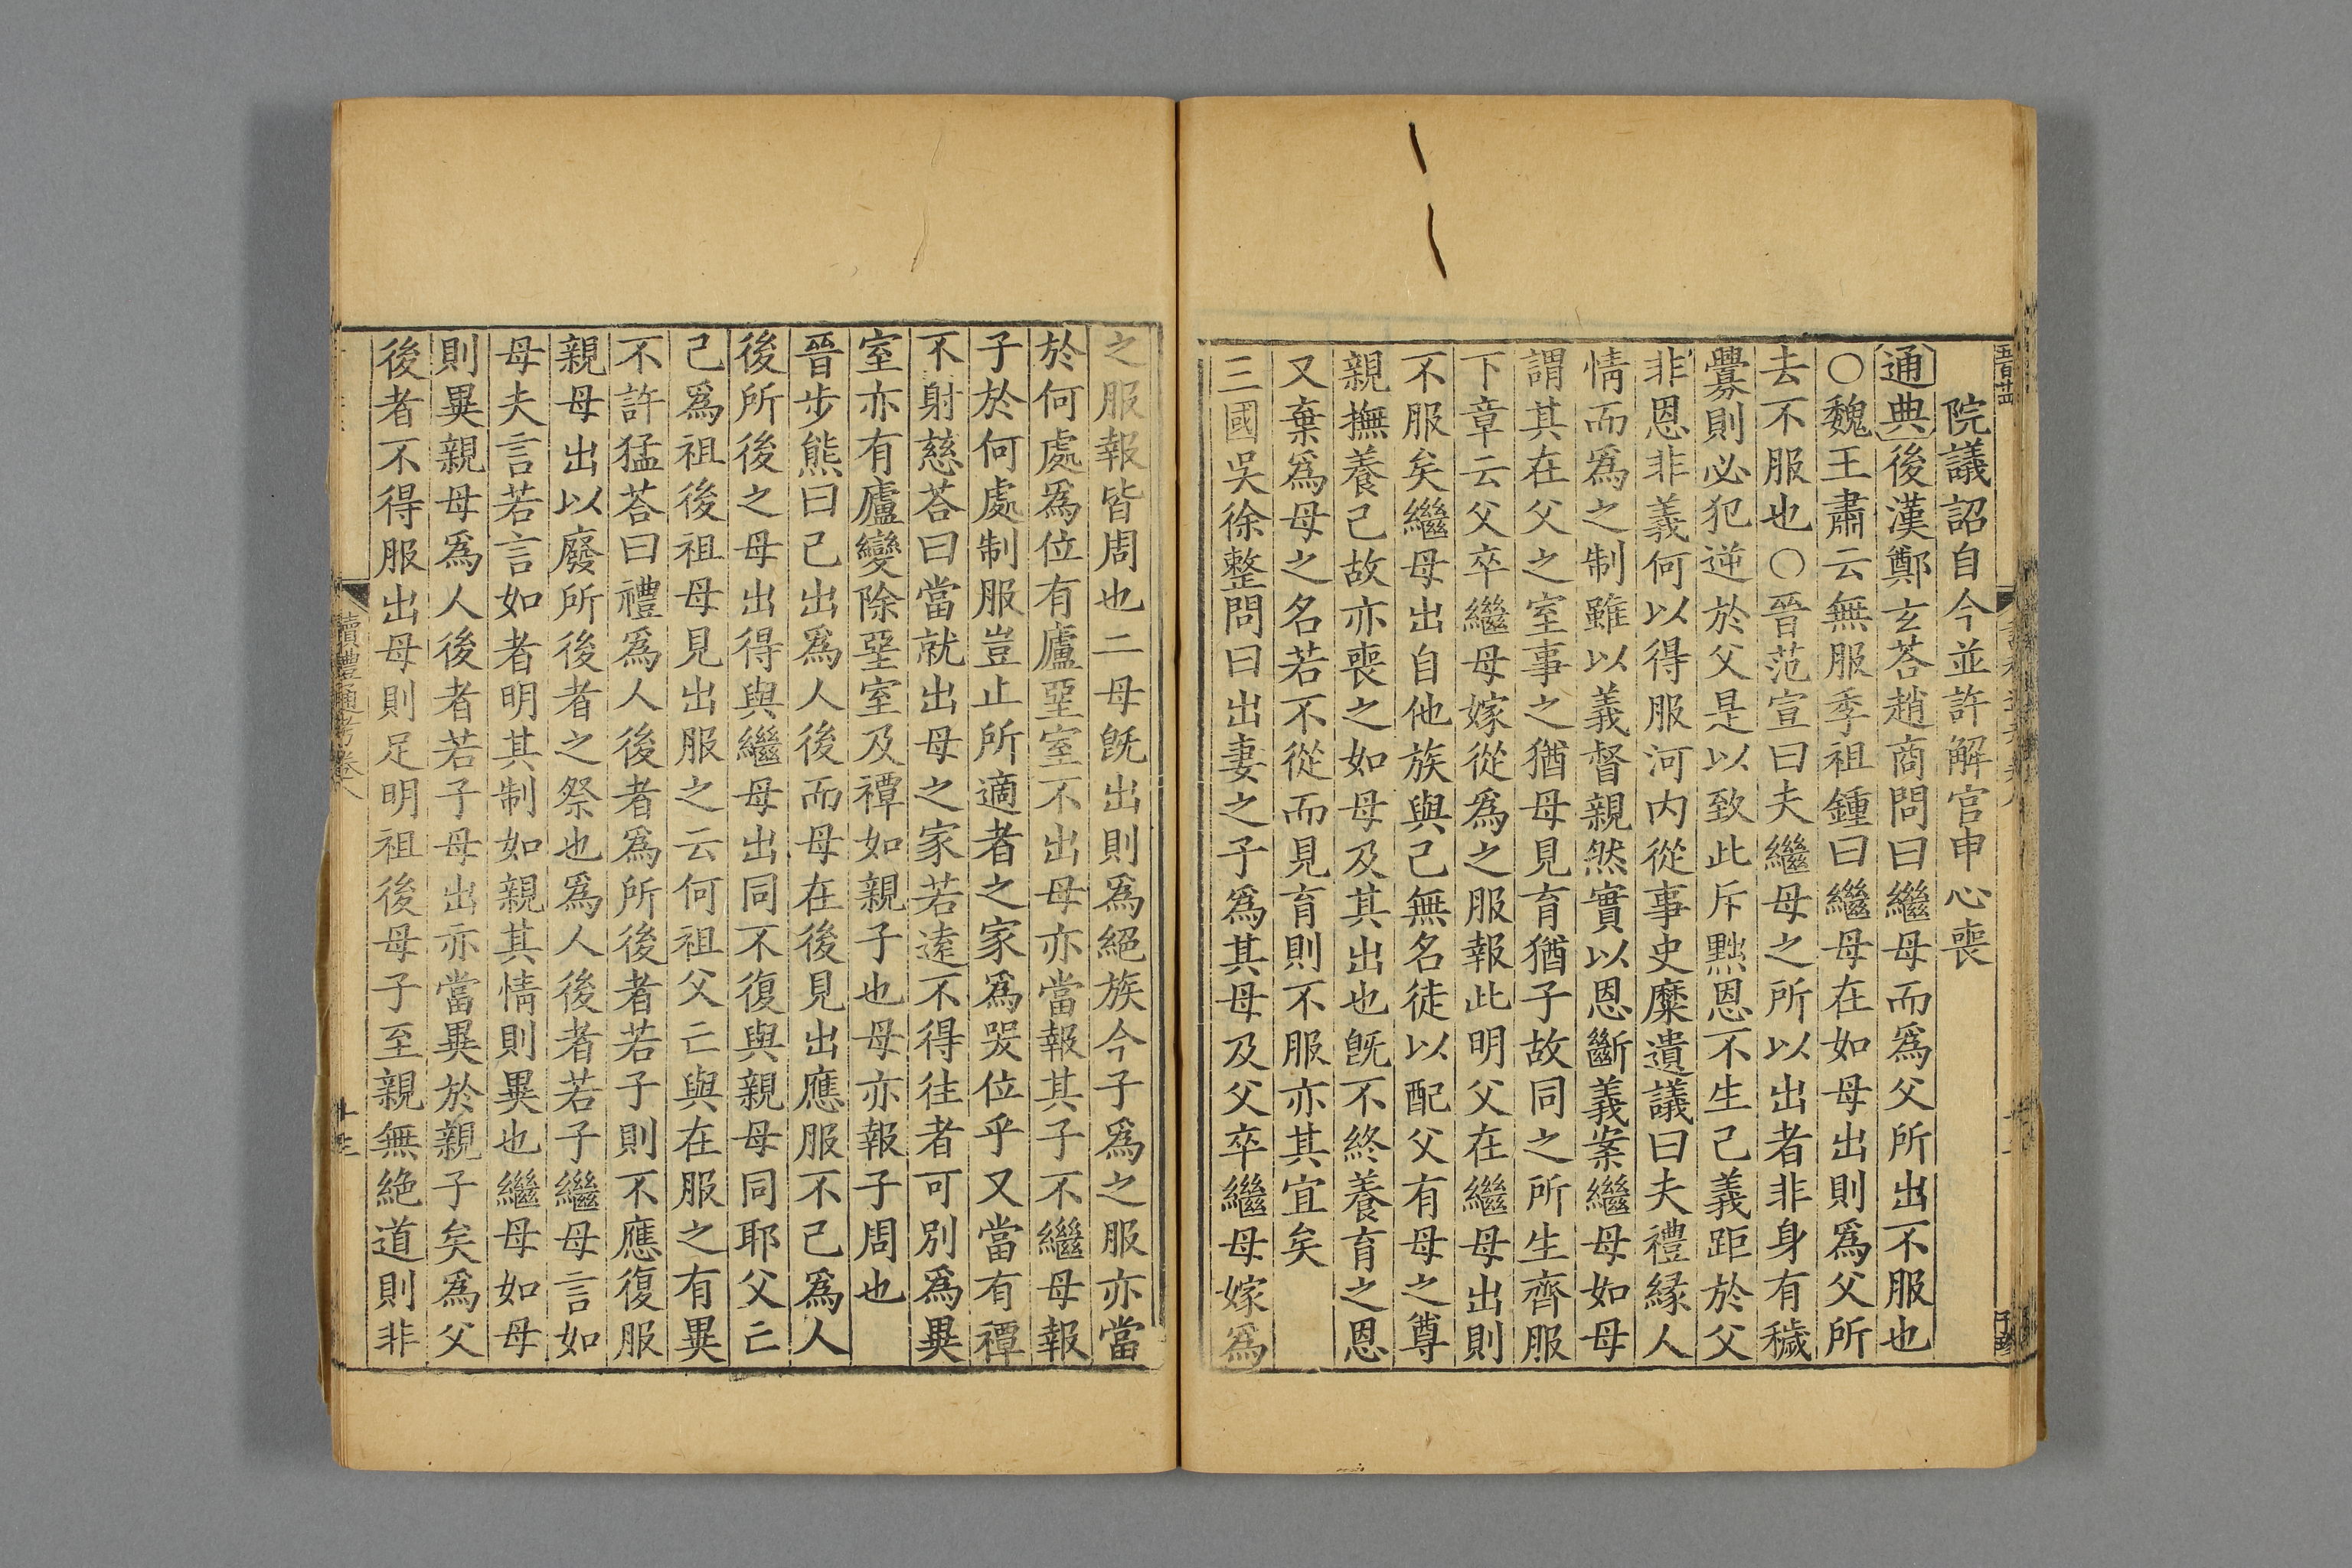 院議詔自今並許解官申心喪
通典後漢鄭玄荅趙商問曰繼母而爲父所出不服也
○魏王肅云無服季祖鍾曰繼母在如母出則爲父所
去不服也○晉范宣曰夫繼母之所以出者非身有穢
釁則必犯逆於父是以致此斥黜恩不生己義距於父
非恩非義何以得服河内從事史糜遺議曰夫禮縁人
情而爲之制雖以義督親然實以恩斷義案繼母如母
謂其在父之室事之猶母見育猶子故同之所生齊服
下章云父卒繼母嫁從爲之服報此明父在繼母出則
不服矣繼母出自他族與己無名徒以配父有母之尊
親撫養己故亦喪之如母及其出也旣不終養育之恩
又棄爲母之名若不從而見育則不服亦其宜矣
三國吳徐整問曰出妻之子爲其母及父卒繼母嫁爲
之服報皆周也二母旣出則爲絕族今子爲之服亦當
於何處爲位有廬堊室不出母亦當報其子不繼母報
子於何處制服豈止所適者之家爲哭位乎又當有禫
不射慈荅曰當就出母之家若遠不得往者可別爲異
室亦有廬變除堊室及禫如親子也母亦報子周也
晉步熊曰己出爲人後而母在後見出應服不己爲人
後所後之母出得與繼母出同不復與親母同耶父亡
己爲祖後祖母見出服之云何祖父亡與在服之有異
不許猛荅曰禮爲人後者爲所後者若子則不應復服
親母出以廢所後者之祭也爲人後者若子繼母言如
母夫言若言如者明其制如親其情則異也繼母如母
則異親母爲人後者若子母出亦當異於親子矣爲父
後者不得服出母則足明祖後母子至親無絶道則非
讀禮通考卷八